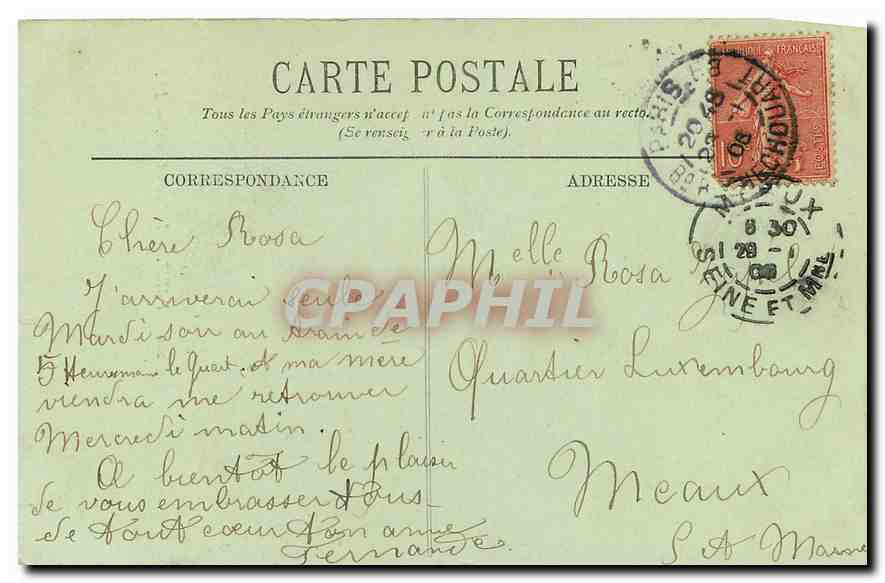 CARTE POSTALE
Tous les Pays étrangers n'accep nt pas la Correspondance au recto.
(Se renseig er à la Poste).
CORRESPONDANCE
ADRESSE
RÉPUBLIQUE FRANÇAISE
10
POSTES
PARIS
20
ROCHECHOUART
MEAUX
8 30
29
08
SEINE ET MNE
Chère Rosa
J'arriverai seule
Mardi soir au train de
5 Heures moins le Quart. et ma mère
viendra me retrouver
Mercredi matin.
A bientôt le plaisir
de vous embrasser tous
de tout cœur ton amie
Fernande.
Melle Rosa
Quartier Luxembourg
Meaux
S et Marne
CPAPHIL